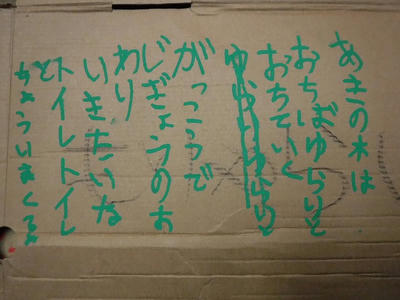 あきの木は
おちばゆらりと
おちていく
ゆらりゆらりと
がっこうで
じぎょうのお
わり
いきたいな
トイレトイレ
と